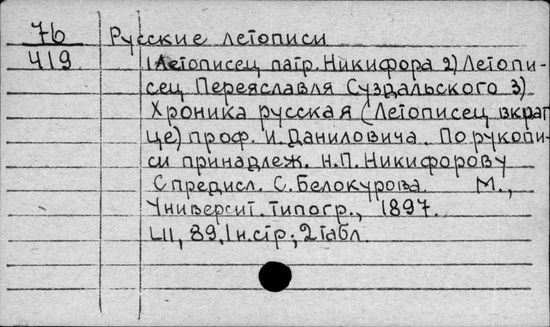 76 Русские летописи
419 1) Летописец патр. Никифора 2) Летопи-
сец Переяславля Суздальского 3)
Хроника русская (Летописец вкрат-
це) проф. И. Даниловича. По рукопи-
си принадлеж. Н.П. Никифорову
С предисл. С. Белокурова М.,
Университ. типогр., 1897.
LII, 89, 1 н. стр; 2 табл.